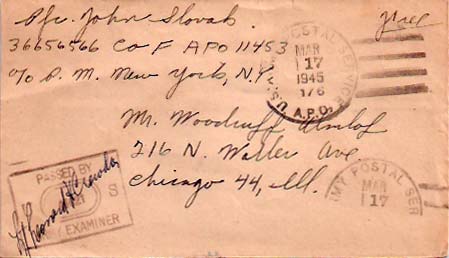 Pfc. John Slovak
Free
36656566 Co F APO 11453
c/o P. M. New York, N.Y.
POSTAL SERVICE
MAR
17
1945
176
U.S. A.P.O.
Mr. Woodruff Almlof
216 N. Waller Ave
Chicago 44, Ill.
PASSED BY
S
EXAMINER
MY POSTAL SER
MAR
17